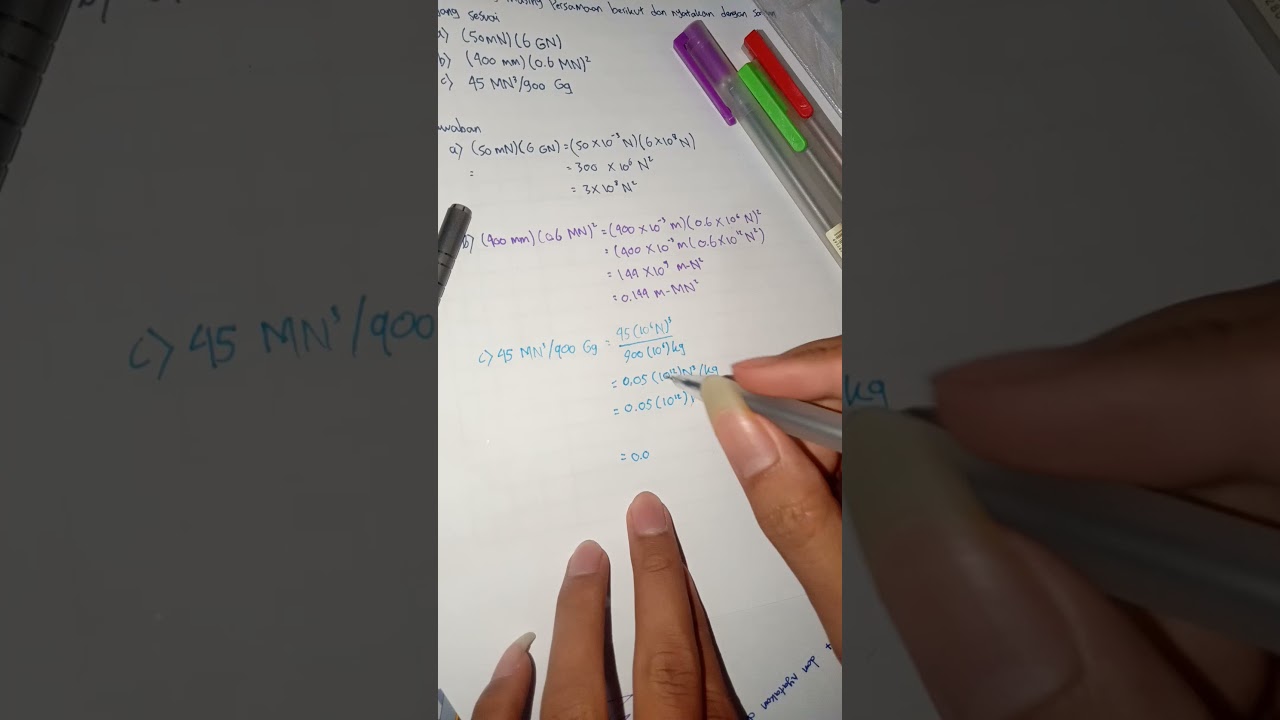 masing Persamaan berikut dan nyatakan dengan
yang sesuai
a) (50 mN)(6 GN)
b) (400 mm)(0.6 MN)²
c) 45 MN³/900 Gg
a) (50 mN)(6 GN) = (50 × 10⁻³ N)(6 × 10⁹ N)
= = 300 × 10⁶ N²
= 3 × 10⁸ N²
b) (400 mm)(0.6 MN)² = (400 × 10⁻³ m)(0.6 × 10⁶ N)²
= (400 × 10⁻³ m(0.6 × 10¹² N²)
= 144 × 10⁹ m-N²
= 0.144 m-MN²
c) 45 MN³/900 Gg = 45 (10⁶ N)³
900 (10⁶) kg
= 0,05 (10¹²) N³/kg
= 0.05 (10¹²)
= 0.0
c) 45 MN³/900
kg
dan nyatakan